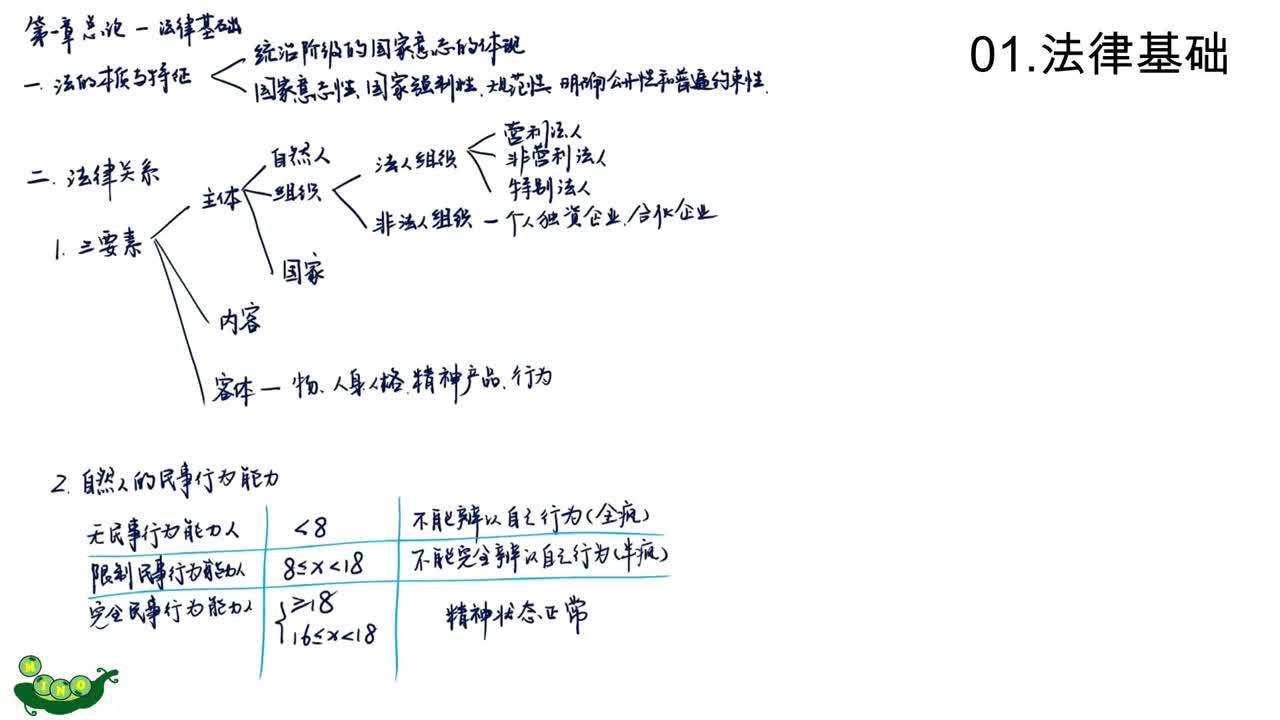 01.法律基础
第一章总论-法律基础
一.法的本质与特征
统治阶级的国家意志的体现
国家意志性、国家强制性、规范性、明确公开性和普遍约束性.
二.法律关系
1.三要素
主体
自然人
组织
法人组织
营利法人
非营利法人
特别法人
非法人组织-个人独资企业、合伙企业
国家
内容
客体-物、人身人格、精神产品、行为
2.自然人的民事行为能力
无民事行为能力人 <8 不能辨认自己行为(全疯)
限制民事行为能力人 8≤x<18 不能完全辨认自己行为(半疯)
完全民事行为能力人 ≥18 精神状态正常
16≤x<18
MINO